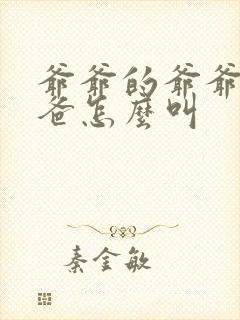 爺爺的爺爺
爸怎麼叫
秦金敏